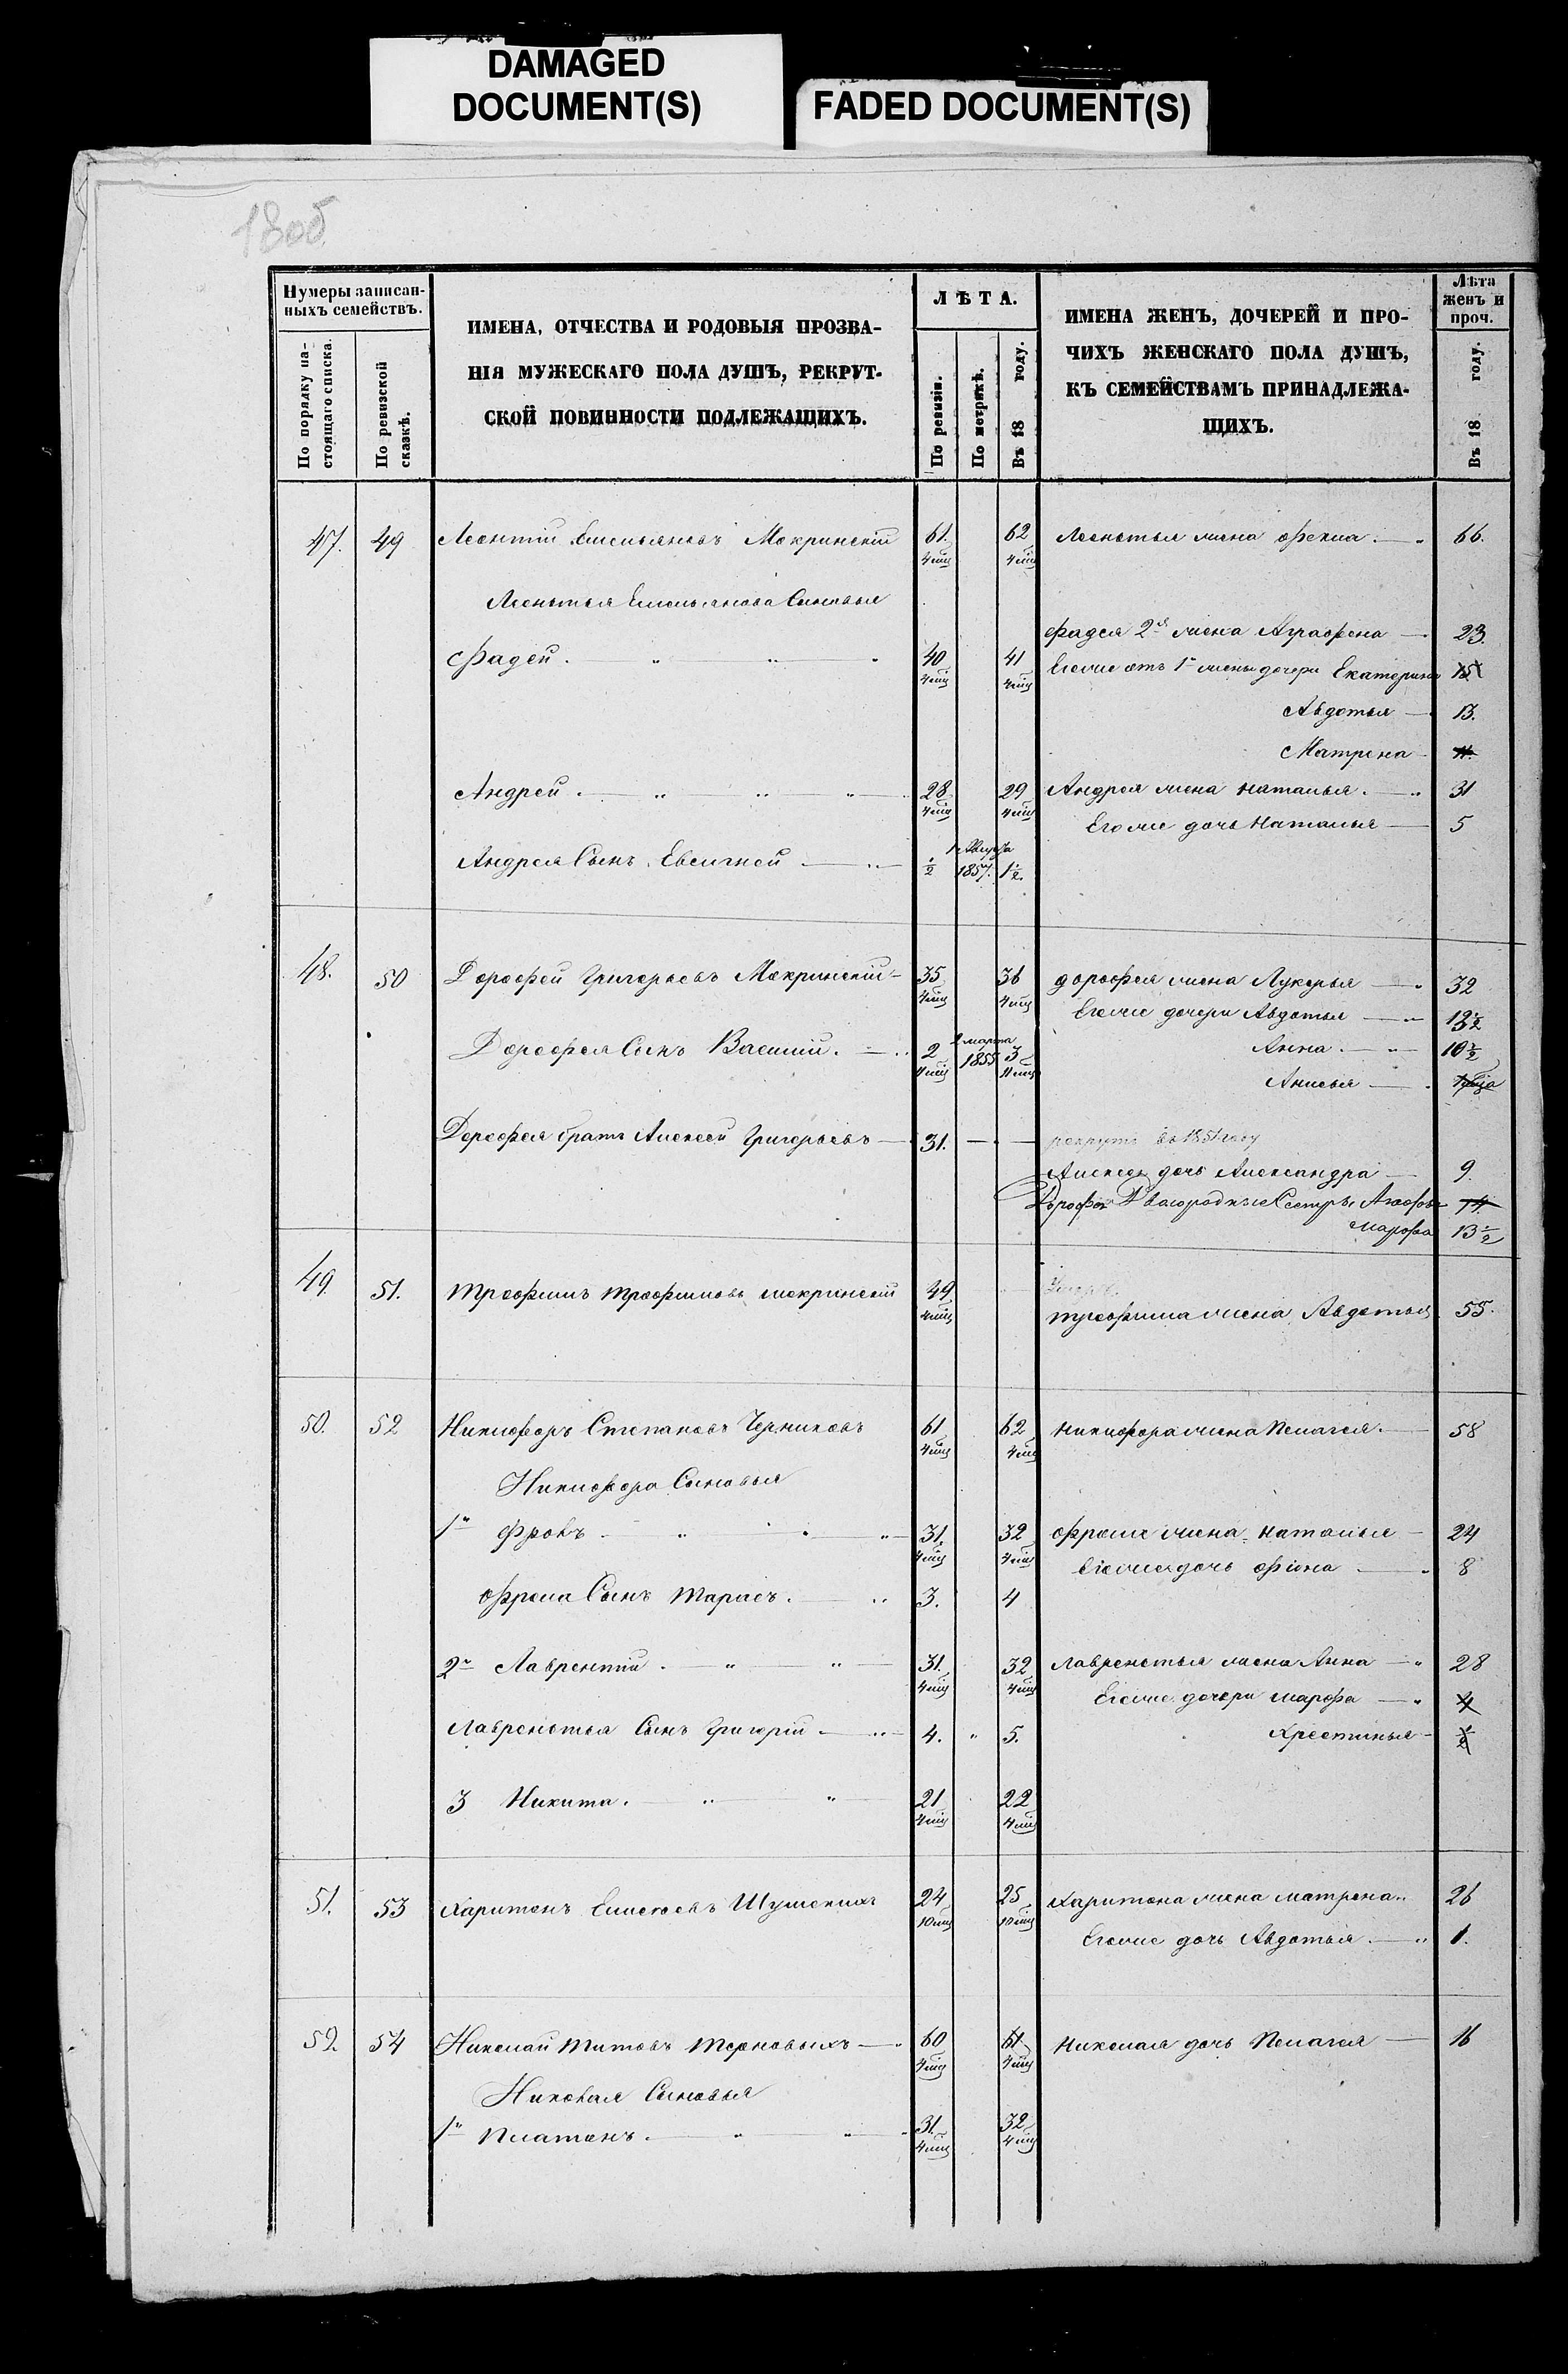 DAMAGED
DOCUMENT(S)
FADED DOCUMENT(S)
180об
Нумеры записан-
ныхъ семействъ.
По порядку на-
стоящаго списка.
По ревизской
сказкѣ.
ИМЕНА, ОТЧЕСТВА И РОДОВЫЯ ПРОЗВА-
НІЯ МУЖЕСКАГО ПОЛА ДУШЪ, РЕКРУТ-
СКОЙ ПОВИННОСТИ ПОДЛЕЖАЩИХЪ.
ЛѢТА.
По ревизіи.
По метрикѣ.
Въ 18 году.
ИМЕНА ЖЕНЪ, ДОЧЕРЕЙ И ПРО-
ЧИХЪ ЖЕНСКАГО ПОЛА ДУШЪ,
КЪ СЕМЕЙСТВАМЪ ПРИНАДЛЕЖА-
ЩИХЪ.
Лѣта
женъ и
проч.
Въ 18 году.
47. 49 Леонтій Емельяновъ Мокринскій 61 4 мѣц 62 4 мѣц Леонтья жена Фекла 66.
Леонтья Емельянова Сыновья
Фадея 2я жена Аграфена 23.
Фадей 40 4 мѣц 41 4 мѣц Егоже отъ 1й жены дочери Екатерина 15
Авдотья 13.
Матрена 11.
Андрей 28 4 мѣц 29 4 мѣц Андрея жена Наталья 31
Егоже дочь Наталья 5
Андрея Сынъ Евсигней 1/2 1857. 1 1/2.
48. 50 Дорофей Григорьевъ Мокринскій 35 4 мѣц 36 4 мѣц Дорофея жена Лукерья 32
Егоже дочери Авдотья 13 1/2
Дорофея Сынъ Василий 2 4 мѣц марта 1855 3 Анна 10 1/2
Анисья
Дорофея братъ Алексей Григорьевъ 31. рекрутъ въ 1851 году
Алексея дочь Александра 9.
Дорофея Двоюродные Сестры 14.
Марфа 13 1/2
49 51. Трофимъ Трофимовъ Мокринскій 49 4 мѣц Умеръ.
Трофима жена Авдотья 55.
50. 52 Никифоръ Степановъ Черниковъ 61 4 мѣц 62 4 мѣц Никифора жена Пелагея 58
Никифора Сыновья
1й Фролъ 31 4 мѣц 32 4 мѣц Фрола жена Наталья 24
Егоже дочь 8
Фрола Сынъ Тарасъ 3. 4
2й Лаврентій 31 4 мѣц 32 4 мѣц Лаврентья жена Анна 28
Егоже дочери Марфа 4
Лаврентья Сынъ Григорій 4. 5. Хрестинья 1/2
3 Никита 21 4 мѣц 22 4 мѣц
51. 53 Харитонъ Елисеевъ Шумскихъ 24 10 мѣц 25 10 мѣц Харитона жена Матрена 26
Егоже дочь Авдотья 1.
52. 54 Николай Титовъ Терновыхъ 60 4 мѣц 61 4 мѣц Николая дочь Пелагея 16
Николая Сыновья
1й Платонъ 31 4 мѣц 32 4 мѣц